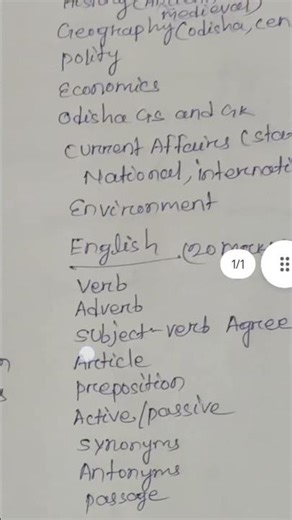 medieval)
Geography (Odisha, cen
polity
Economics
Odisha GS and GK
Current Affairs (sta
National, internati
Environment
English (20 mark
1/1
verb
Adverb
subject-verb Agree
Article
preposition
Active/passive
synonyms
Antonyms
passage